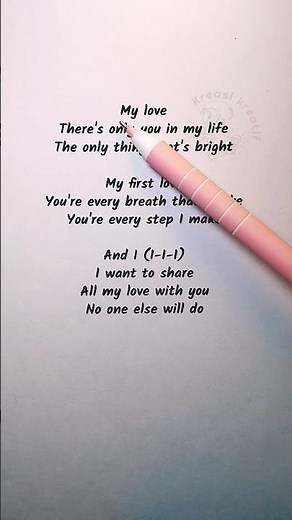 Kreasi kreatif
My love
There's only you in my life
The only thin t's bright
My first lo
You're every breath tha e
You're every step I mak
And I (I-I-I)
I want to share
All my love with you
No one else will do